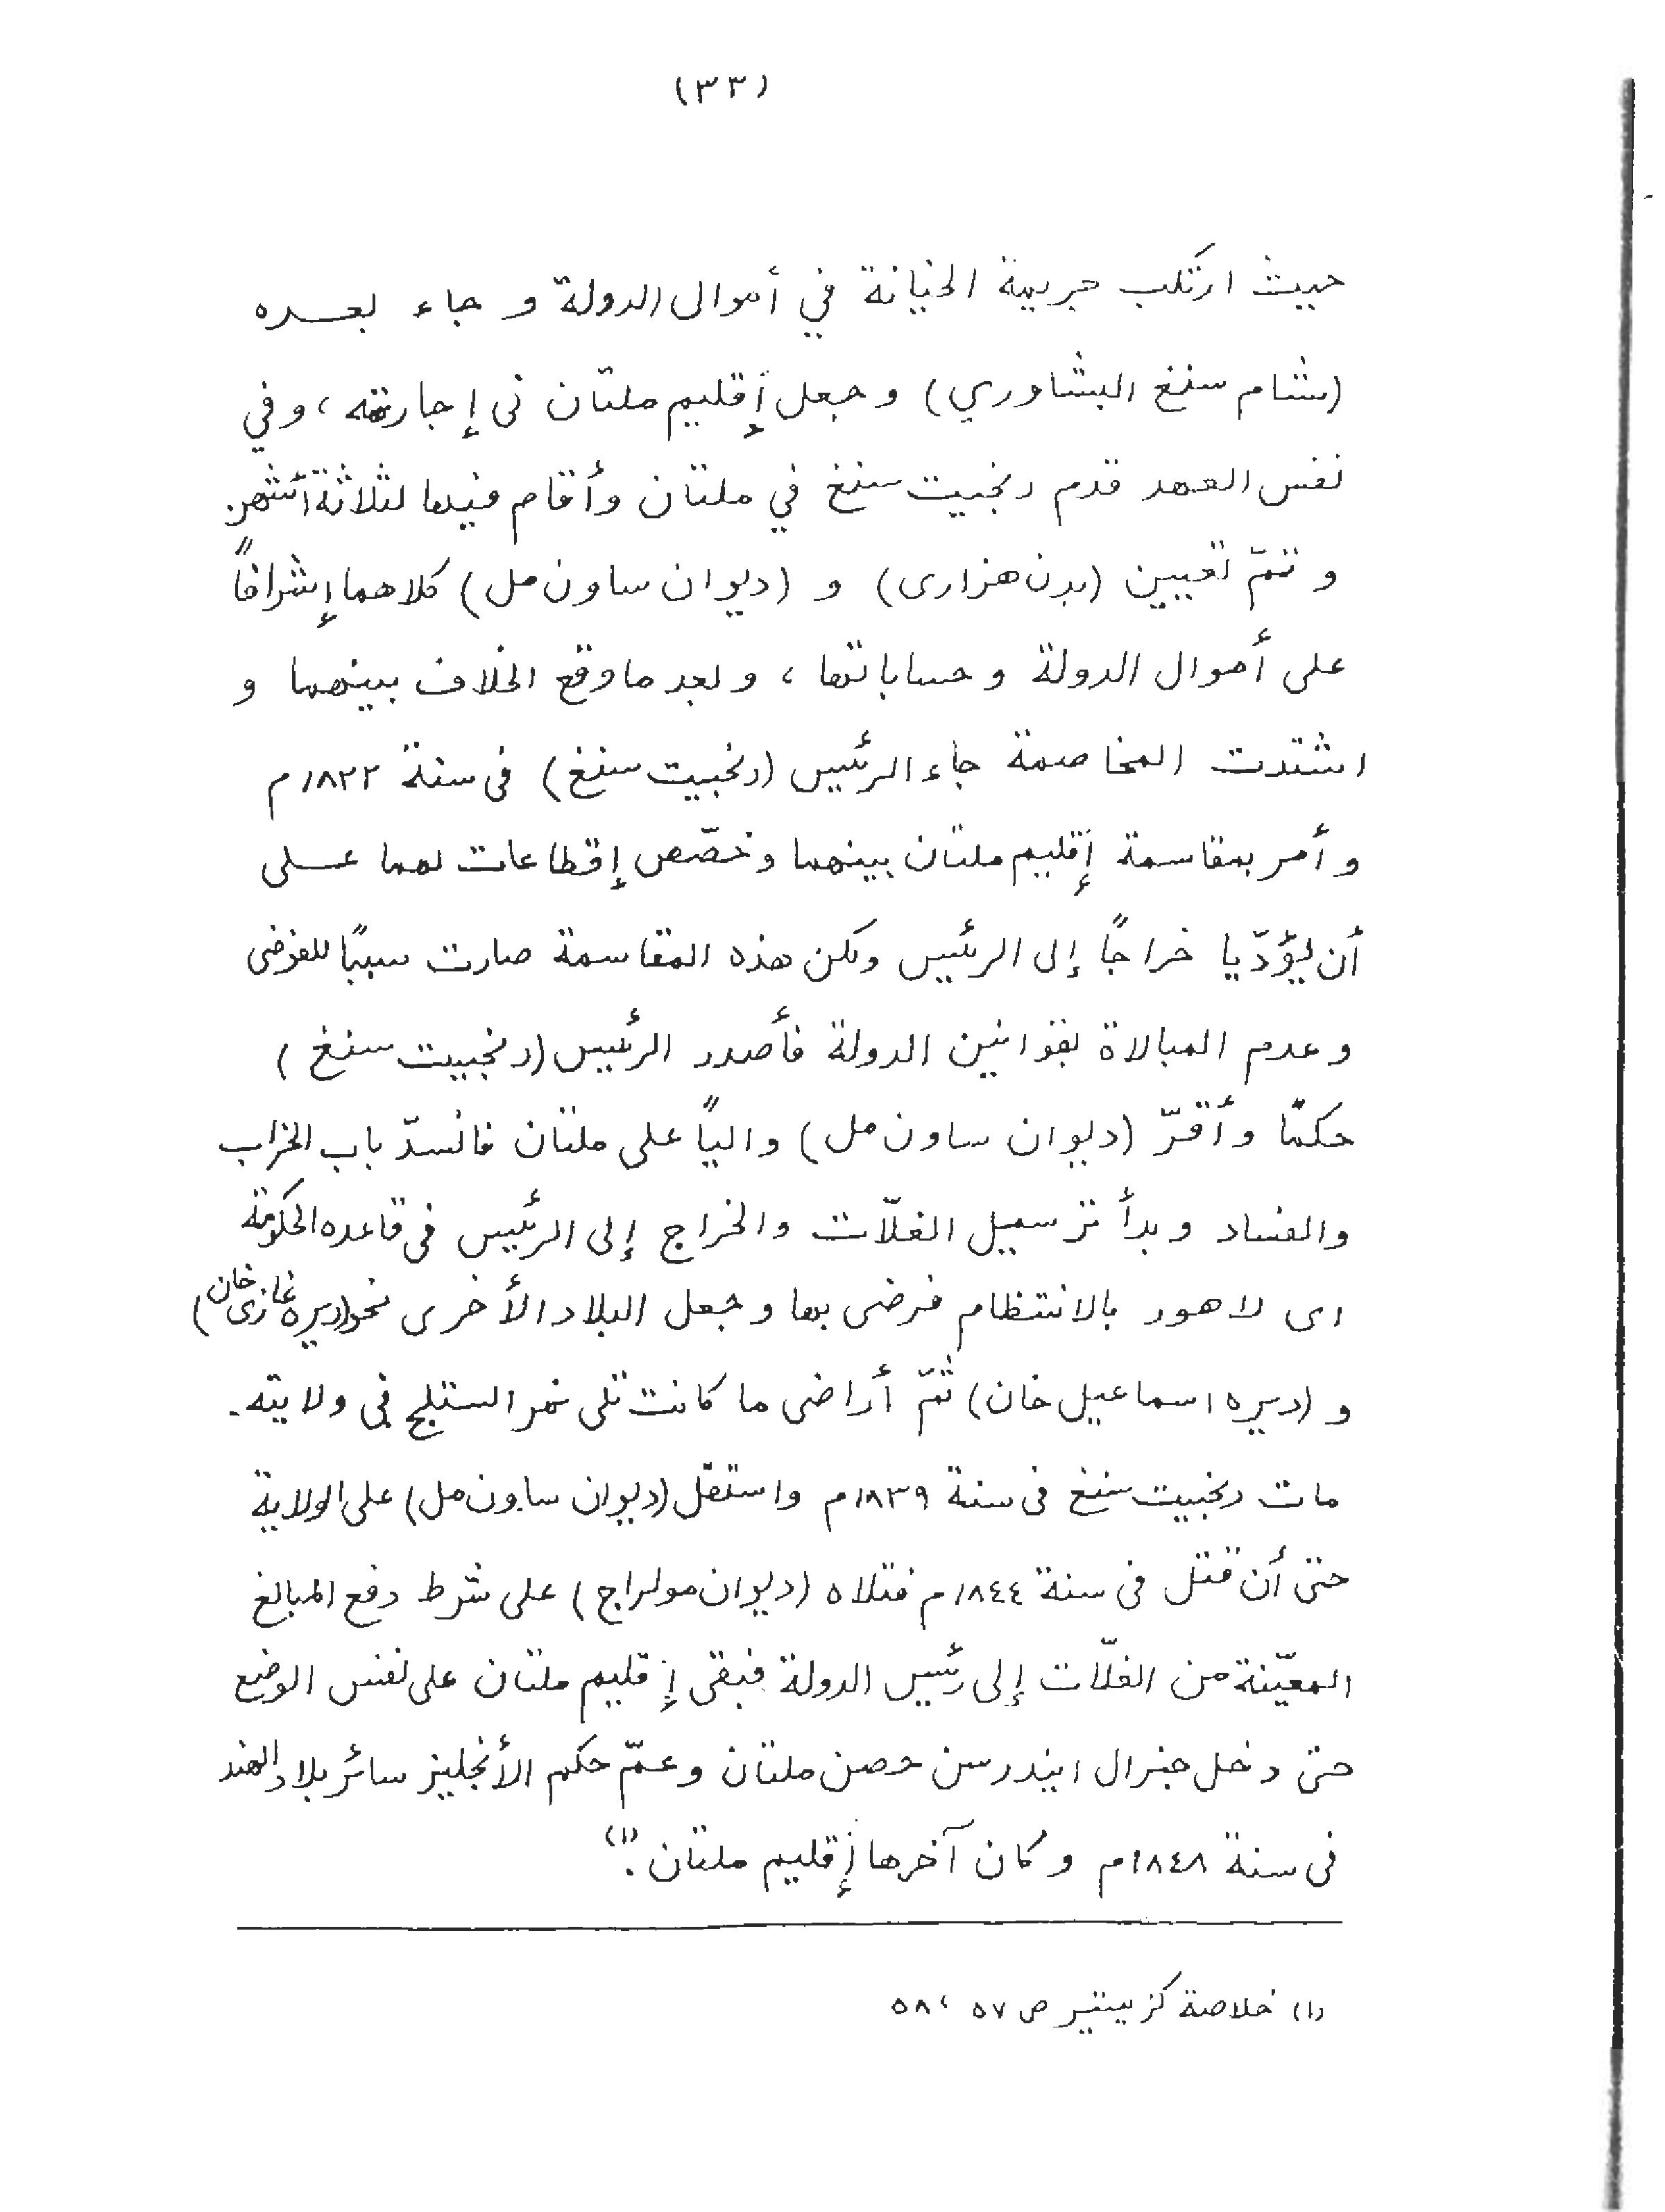 (٣٣)
حيث ارتكب جريمة الخيانة في أموال الدولة و جاء بعده
(شام سنغ البشاوري) وجعل إقليم ملتان في إجارته، وفي
نفس العهد قدم رنجيت سنغ في ملتان وأقام فيها لثلاثة أشهر.
و تمّ تعيين (بدن هزارى) و (ديوان ساون مل) كلاهما إشرافاً
على أموال الدولة و حساباتها، و بعد ما وقع الخلاف بينهما و
اشتدت المخاصمة جاء الرئيس (رنجيت سنغ) فى سنة ١٨٢٢م
و أمر بمقاسمة إقليم ملتان بينهما و خصّص إقطاعات لهما على
أن يؤدّيا خراجًا إلى الرئيس ولكن هذه المقاسمة صارت سببًا للفوضى
و عدم المبالاة بقوانين الدولة فأصدر الرئيس (رنجيت سنغ)
حكمًا و أقرّ (ديوان ساون مل) والياً على ملتان فانسدّ باب الخراب
والفساد و بدأ ترسيل الغلّات والخراج إلى الرئيس فى قاعده الحكومة
اى لاهور بالانتظام فرضى بها و جعل البلاد الأخرى نحو (ديره غازى خان)
و (ديره اسماعيل خان) ثمّ أراضى ما كانت تلى نهر الستلج فى ولايته.
مات رنجيت سنغ فى سنة ١٨٣٩م واستقل (ديوان ساون مل) على الولاية
حتى أن قتل فى سنة ١٨٤٤م فتلاه (ديوان مولراج) على شرط دفع المبالغ
المعيّنة من الغلّات إلى رئيس الدولة فبقى إقليم ملتان على نفس الوضع
حتى دخل جنرال ايندرسن حصن ملتان و عمّ حكم الأنجليز سائر بلاد الهند
فى سنة ١٨٤٨م و كان آخرها إقليم ملتان."(١)
(١) خلاصة كزيتير ص ٥٧، ٥٨